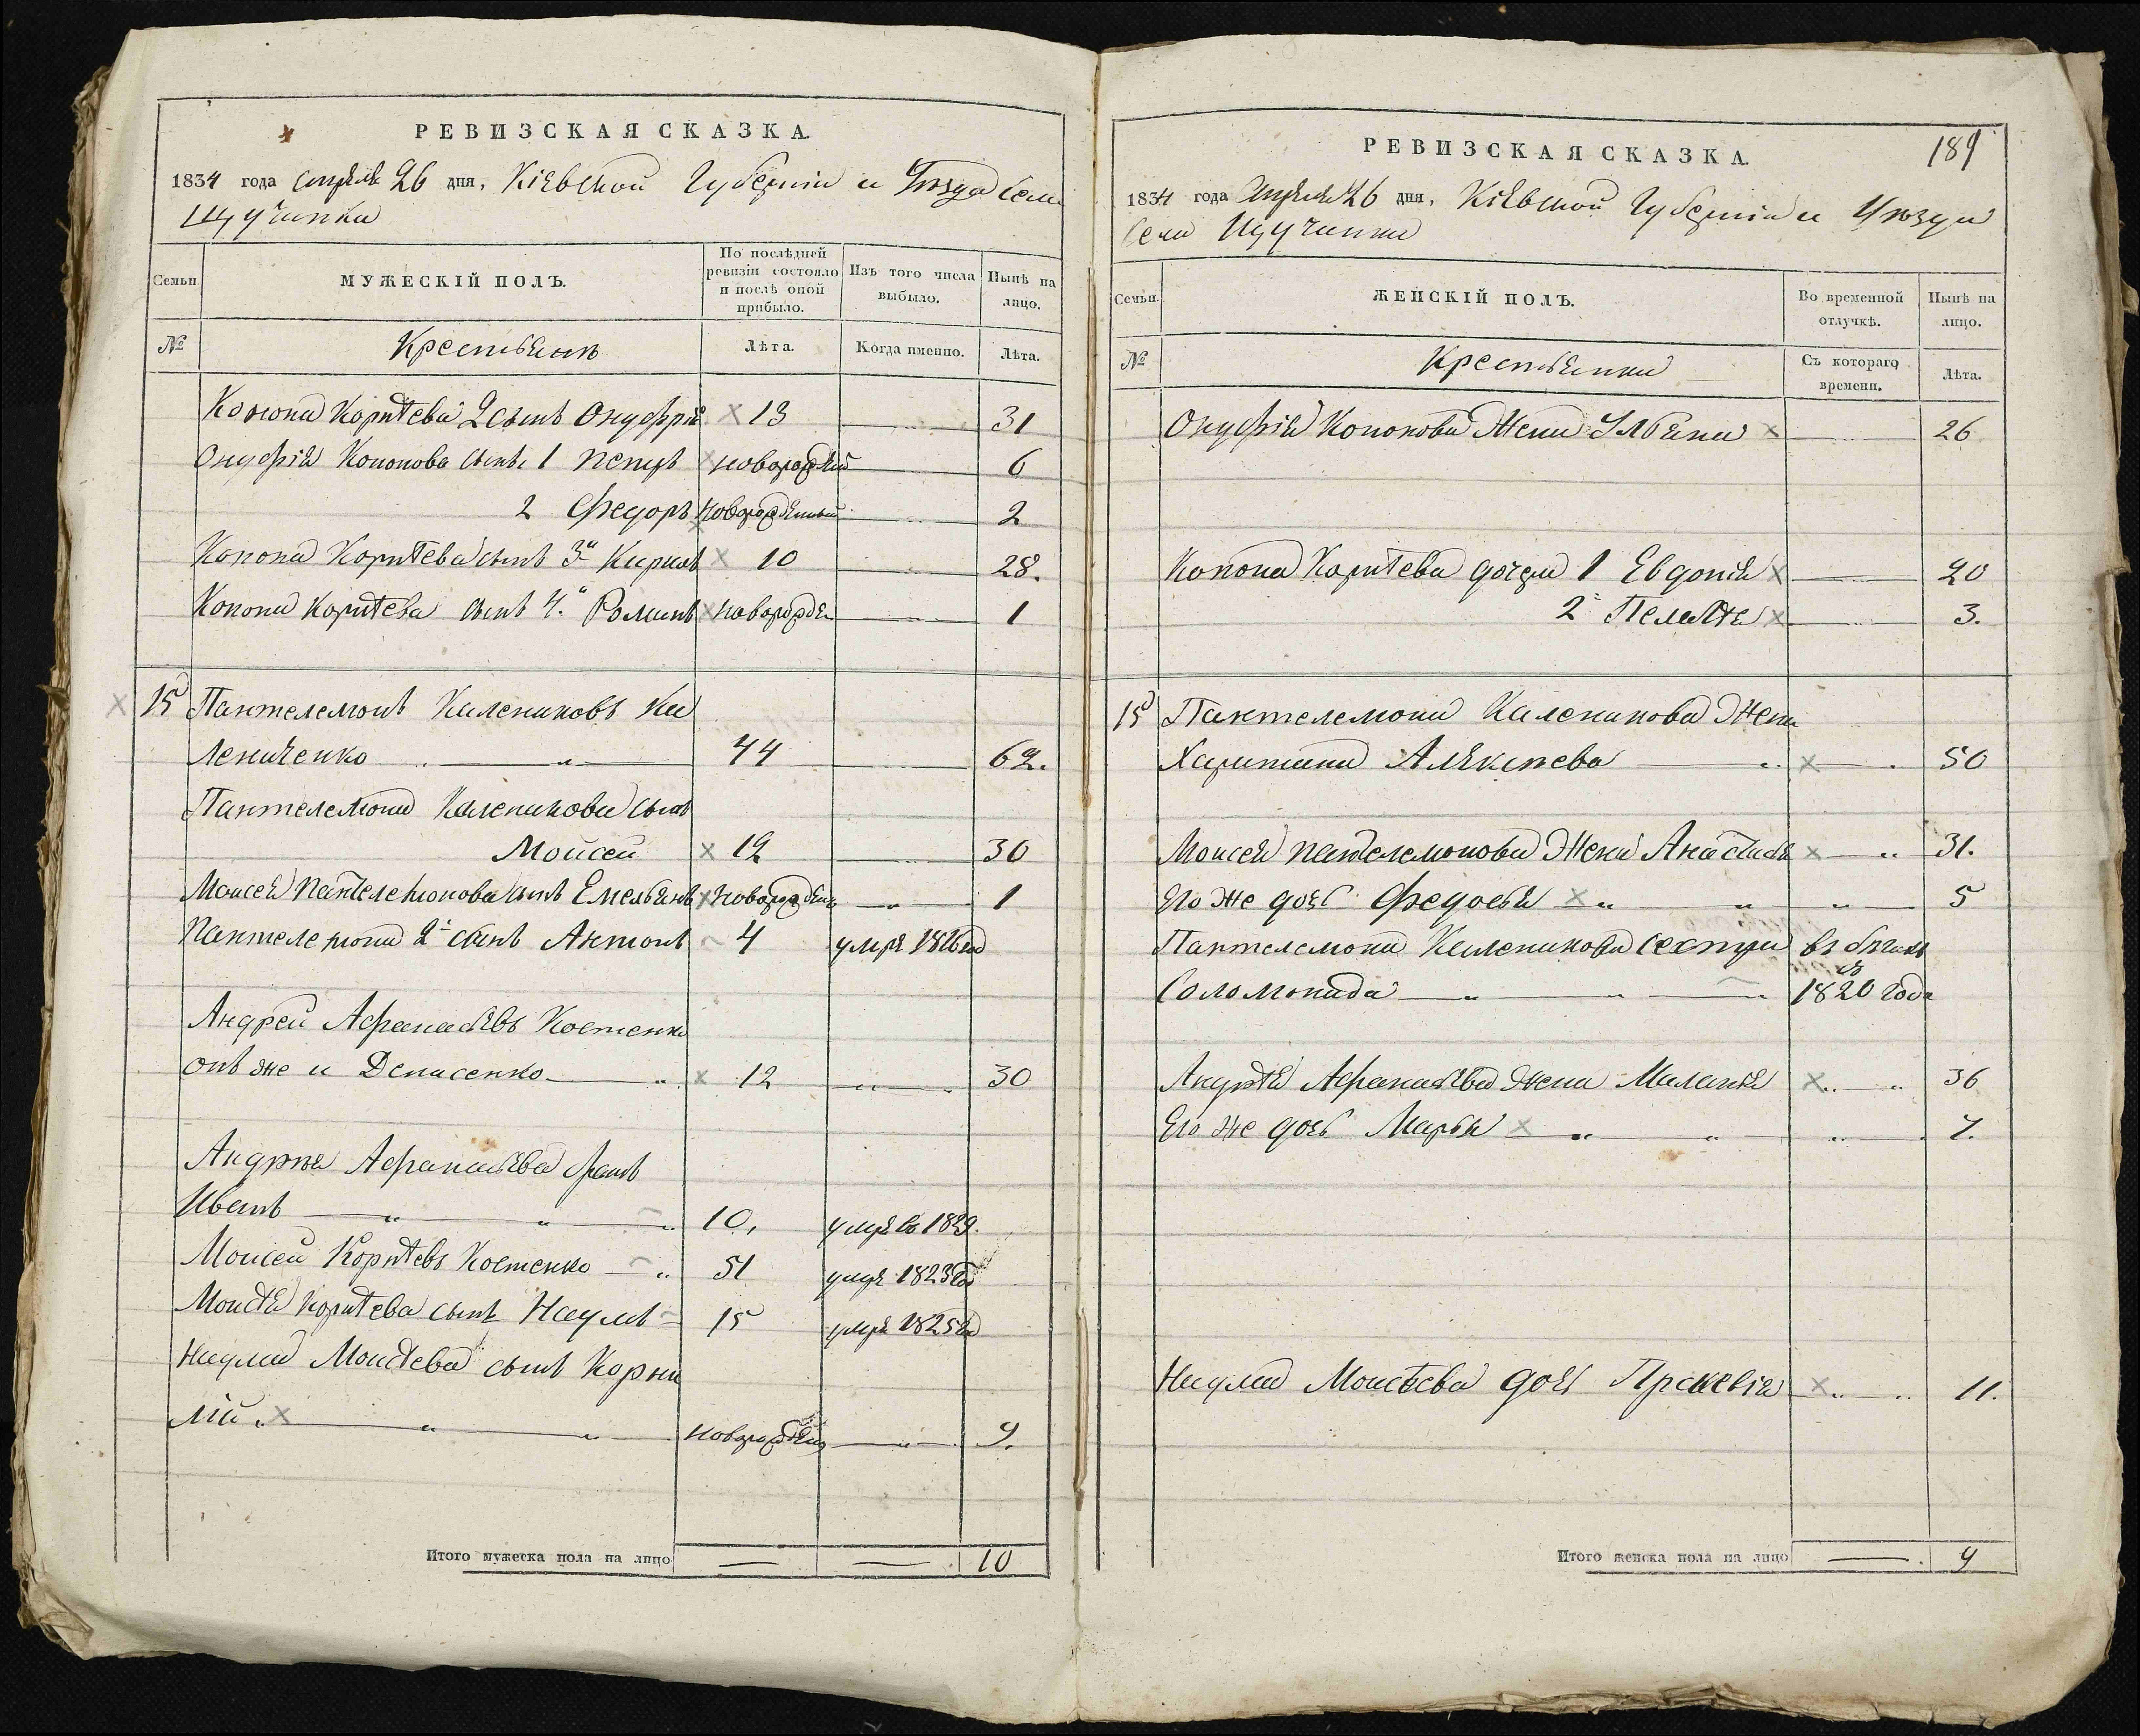 РЕВИЗСКАЯ СКАЗКА.
1834 года апреля 26 дня, Кіевской Губерніи и Уезда села
Щучинки
Семьи.
МУЖЕСКІЙ ПОЛЪ.
По послѣдней ревизіи состояло и послѣ оной прибыло.
Изъ того числа выбыло.
Нынѣ на лицо.
№
Крестьянъ
Лѣта.
Когда именно.
Лѣта.
Конона Корнѣева 2 сынъ Онуфрій 13 31
Онуфрія Кононова сынъ 1 Петръ новорожденный 6
2 Федоръ новорожденный 2
Конона Корнѣева сынъ 3й Кирилъ 10 28.
Конона Корнѣева сынъ 4.й Романъ новорожден 1
15 Пантелемонъ Калениковъ Ка
лениченко 44 62.
Пантелемона Каленикова сынъ
Мойсей 12 30
Моисея Пантелемонова сынъ Емельянъ новорожден 1
Пантелемона 2й сынъ Антонъ 4 умре 1826 год
Андрей Афанасьевъ Костенко
онъ же и Денисенко 12 30
Андрея Афанасьева братъ
Иванъ 10, умре въ 1829.
Моисей Корнѣевъ Костенко 51 умре 1823 год
Моисѣя Корнѣева сынъ Наумъ 15 умре 1825 год
Наума Моисѣева сынъ Корни
лій новорожден 9.
Итого мужеска пола на лицо 10
РЕВИЗСКАЯ СКАЗКА.
189
1834 года апреля 26 дня, Кіевской Губерніи и Уезда
села Щучинки
Семьи.
ЖЕНСКІЙ ПОЛЪ.
Во временной отлучкѣ.
Нынѣ на лицо.
№
Крестьянки
Съ котораго времени.
Лѣта.
Онуфрія Кононова жена Ульяна 26
Конона Корнѣева дочери 1 Евдокія 20
2 Пелагѣя 3.
15 Пантелемона Каленикова жена
Харитина Алексѣева 50
Моисея Пантелемонова жена Анастасія 31.
Его же дочь Федосья 5
Пантелемона Каленикова сестра въ бѣгахъ
съ
Соломонида 1820 года
Андрѣя Афанасьева жена Маланья 36
Его же дочь Марья 7.
Наума Моисѣева дочь Пракевія 11.
Итого женска пола на лицо 9